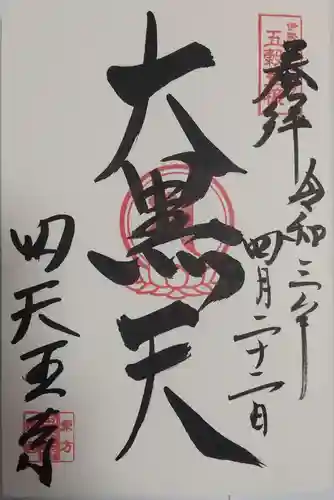 奉拝
令和三年
四月二十二日
大黒天
四天王寺